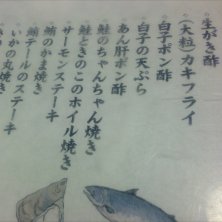 生がき酢
(大粒)カキフライ
白子ポン酢
白子の天ぷら
あん肝ポン酢
鮭のちゃんちゃん焼き
鮭ときのこのホイル焼き
サーモンステーキ
鮪のかま焼き
鮪テールのステーキ
いかの丸焼き